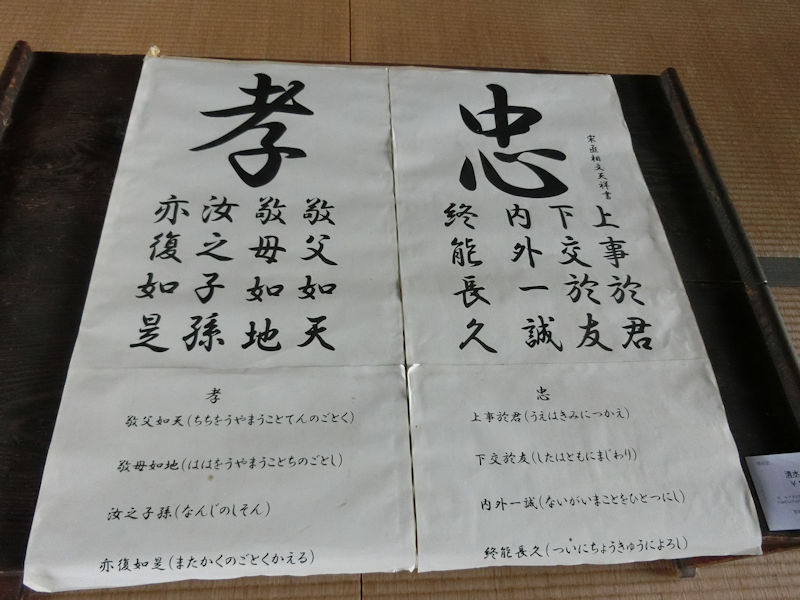 忠
宋丞相文天祥書
上事於君
下交於友
内外一誠
終能長久
孝
敬父如天
敬母如地
汝之子孫
亦復如是
忠
上事於君(うえはきみにつかえ)
下交於友(したはともにまじわり)
内外一誠(ないがいまことをひとつにし)
終能長久(ついにちょうきゅうによろし)
孝
敬父如天(ちちをうやまうことてんのごとく)
敬母如地(ははをうやまうことちのごとし)
汝之子孫(なんじのしそん)
亦復如是(またかくのごとくかえる)